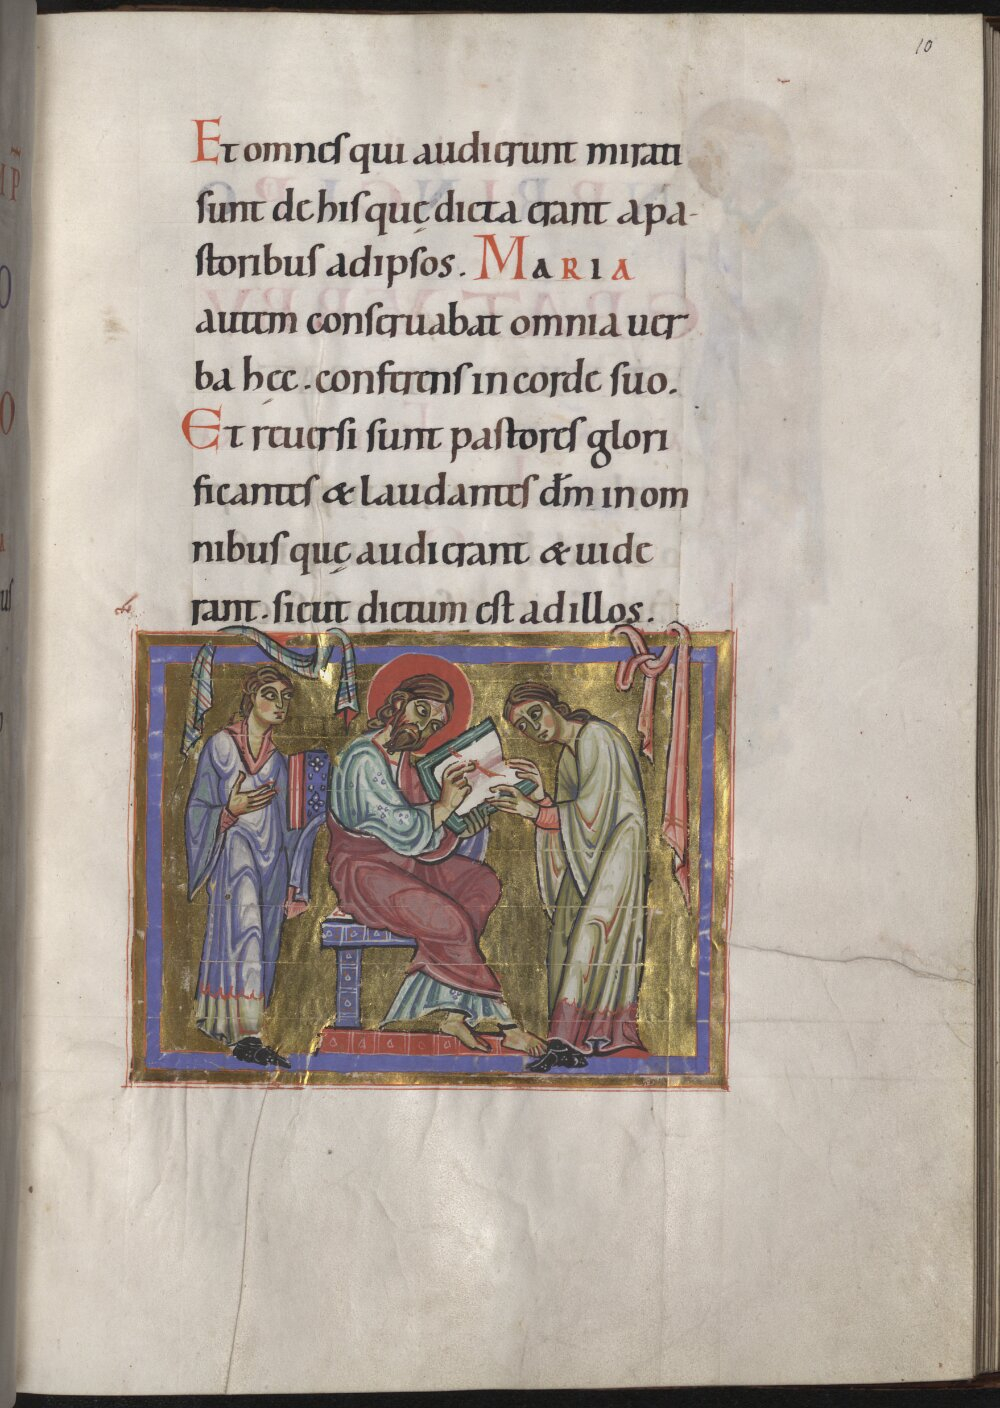 10
Et omnes qui audierunt mirati
sunt de his quę dicta erant a pa-
storibus ad ipsos. MARIA
autem conseruabat omnia uer
ba hęc. conferens in corde suo.
Et reuersi sunt pastores glori
ficantes & laudantes dm̄ in om
nibus quę audierant & uide
rant. sicut dictum est ad illos.